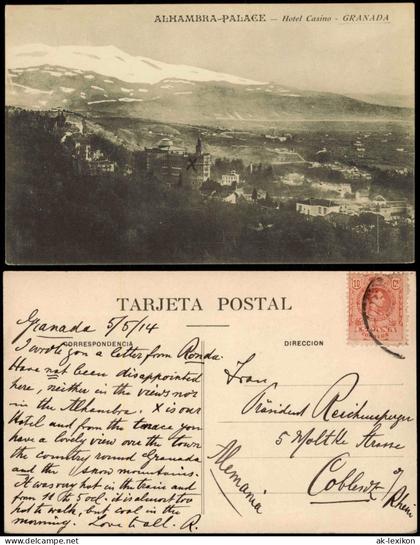 ALHAMBRA-PALACE — Hotel Casino - GRANADA
TARJETA POSTAL
CORRESPONDENCIA
DIRECCION
Granada 5/5/14
I wrote you a letter from Ronda.
Have not been disappointed
here, neither in the views nor
in the Alhambra. X is our
Hotel and from the terrace you
have a lovely view over the town
the country round Granada
and the snow mountains.
It was very hot in the train and
from 10 th 5 ocl. it is almost too
hot to walk, but cool in the
morning. Love to all. R.
Frau
Präsident Reichensperger
5 Moltke Strasse
Coblenz a/
Rhein
Alemania
ak-lexikon.de